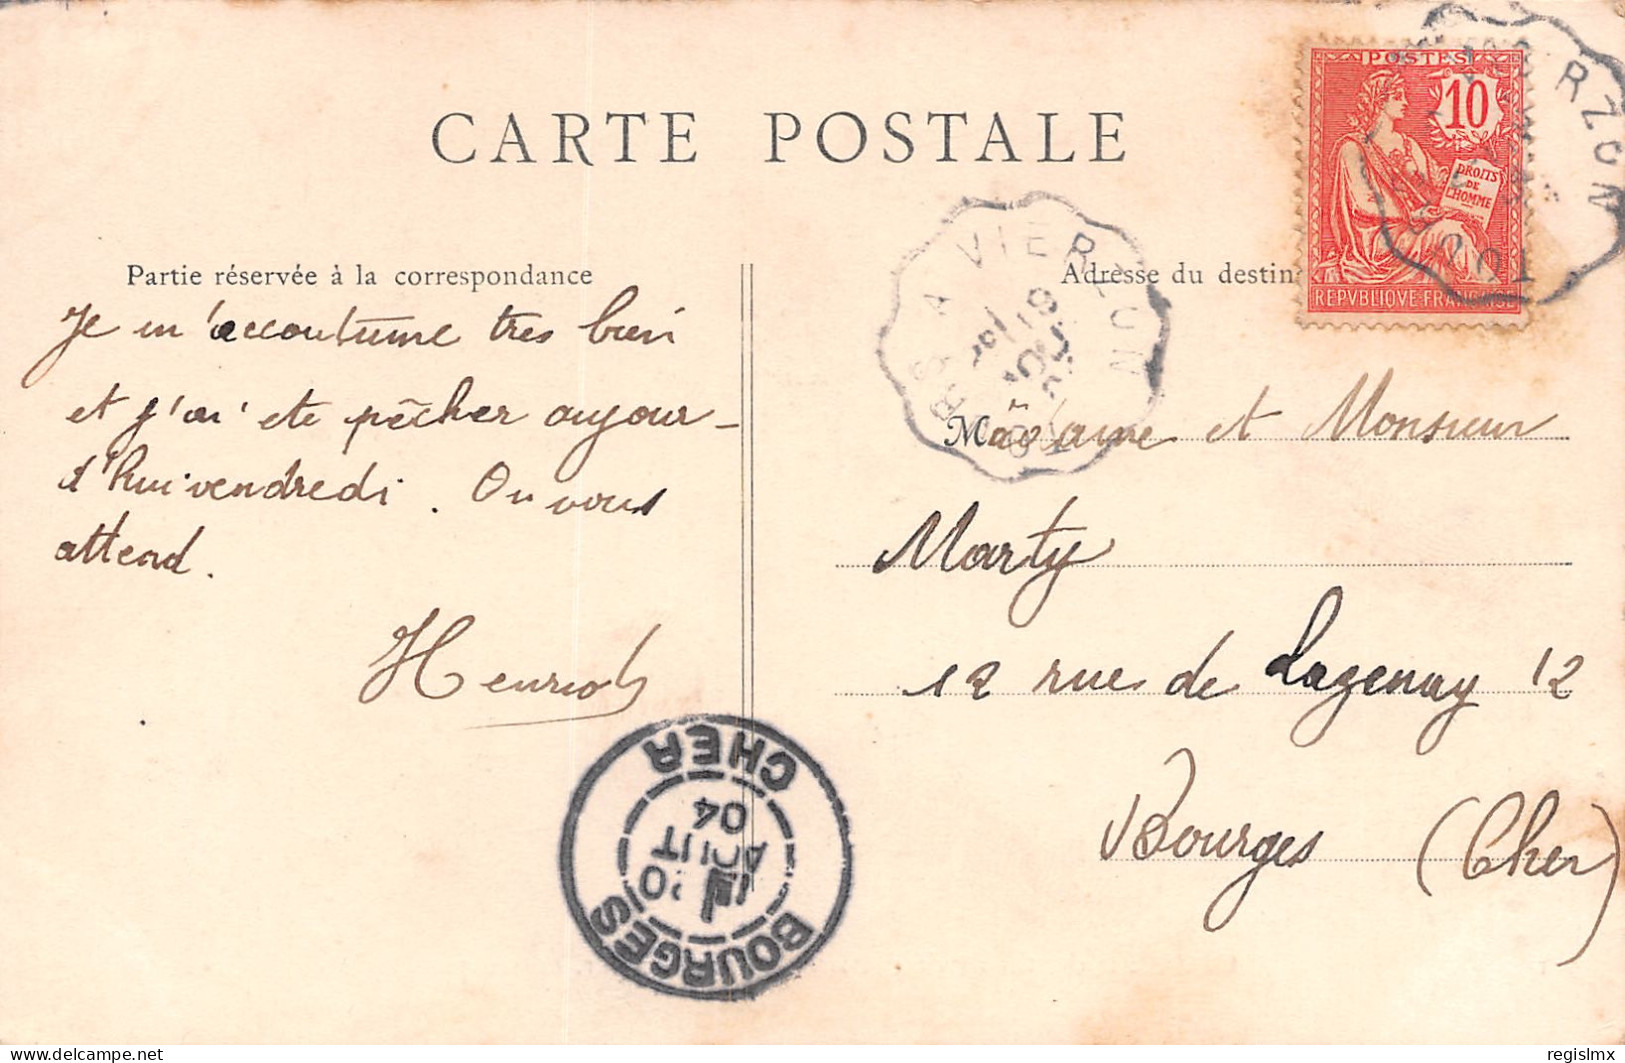 CARTE POSTALE
Partie réservée à la correspondance
Je m'accoutume tres bien
et j'ai été pêcher aujour-
d'hui vendredi. On vous
attend.
Adresse du destin
POSTES
10
DROITS
DE
L'HOMME
REPVBLIQUE FRANÇAISE
RZON
A VIERZON
19
Madame et Monsieur
Marty
12 rue de Lazenay 12
Bourges (Cher)
BOURGES
20
AOUT
04
CHER
delcampe.net
regislmx